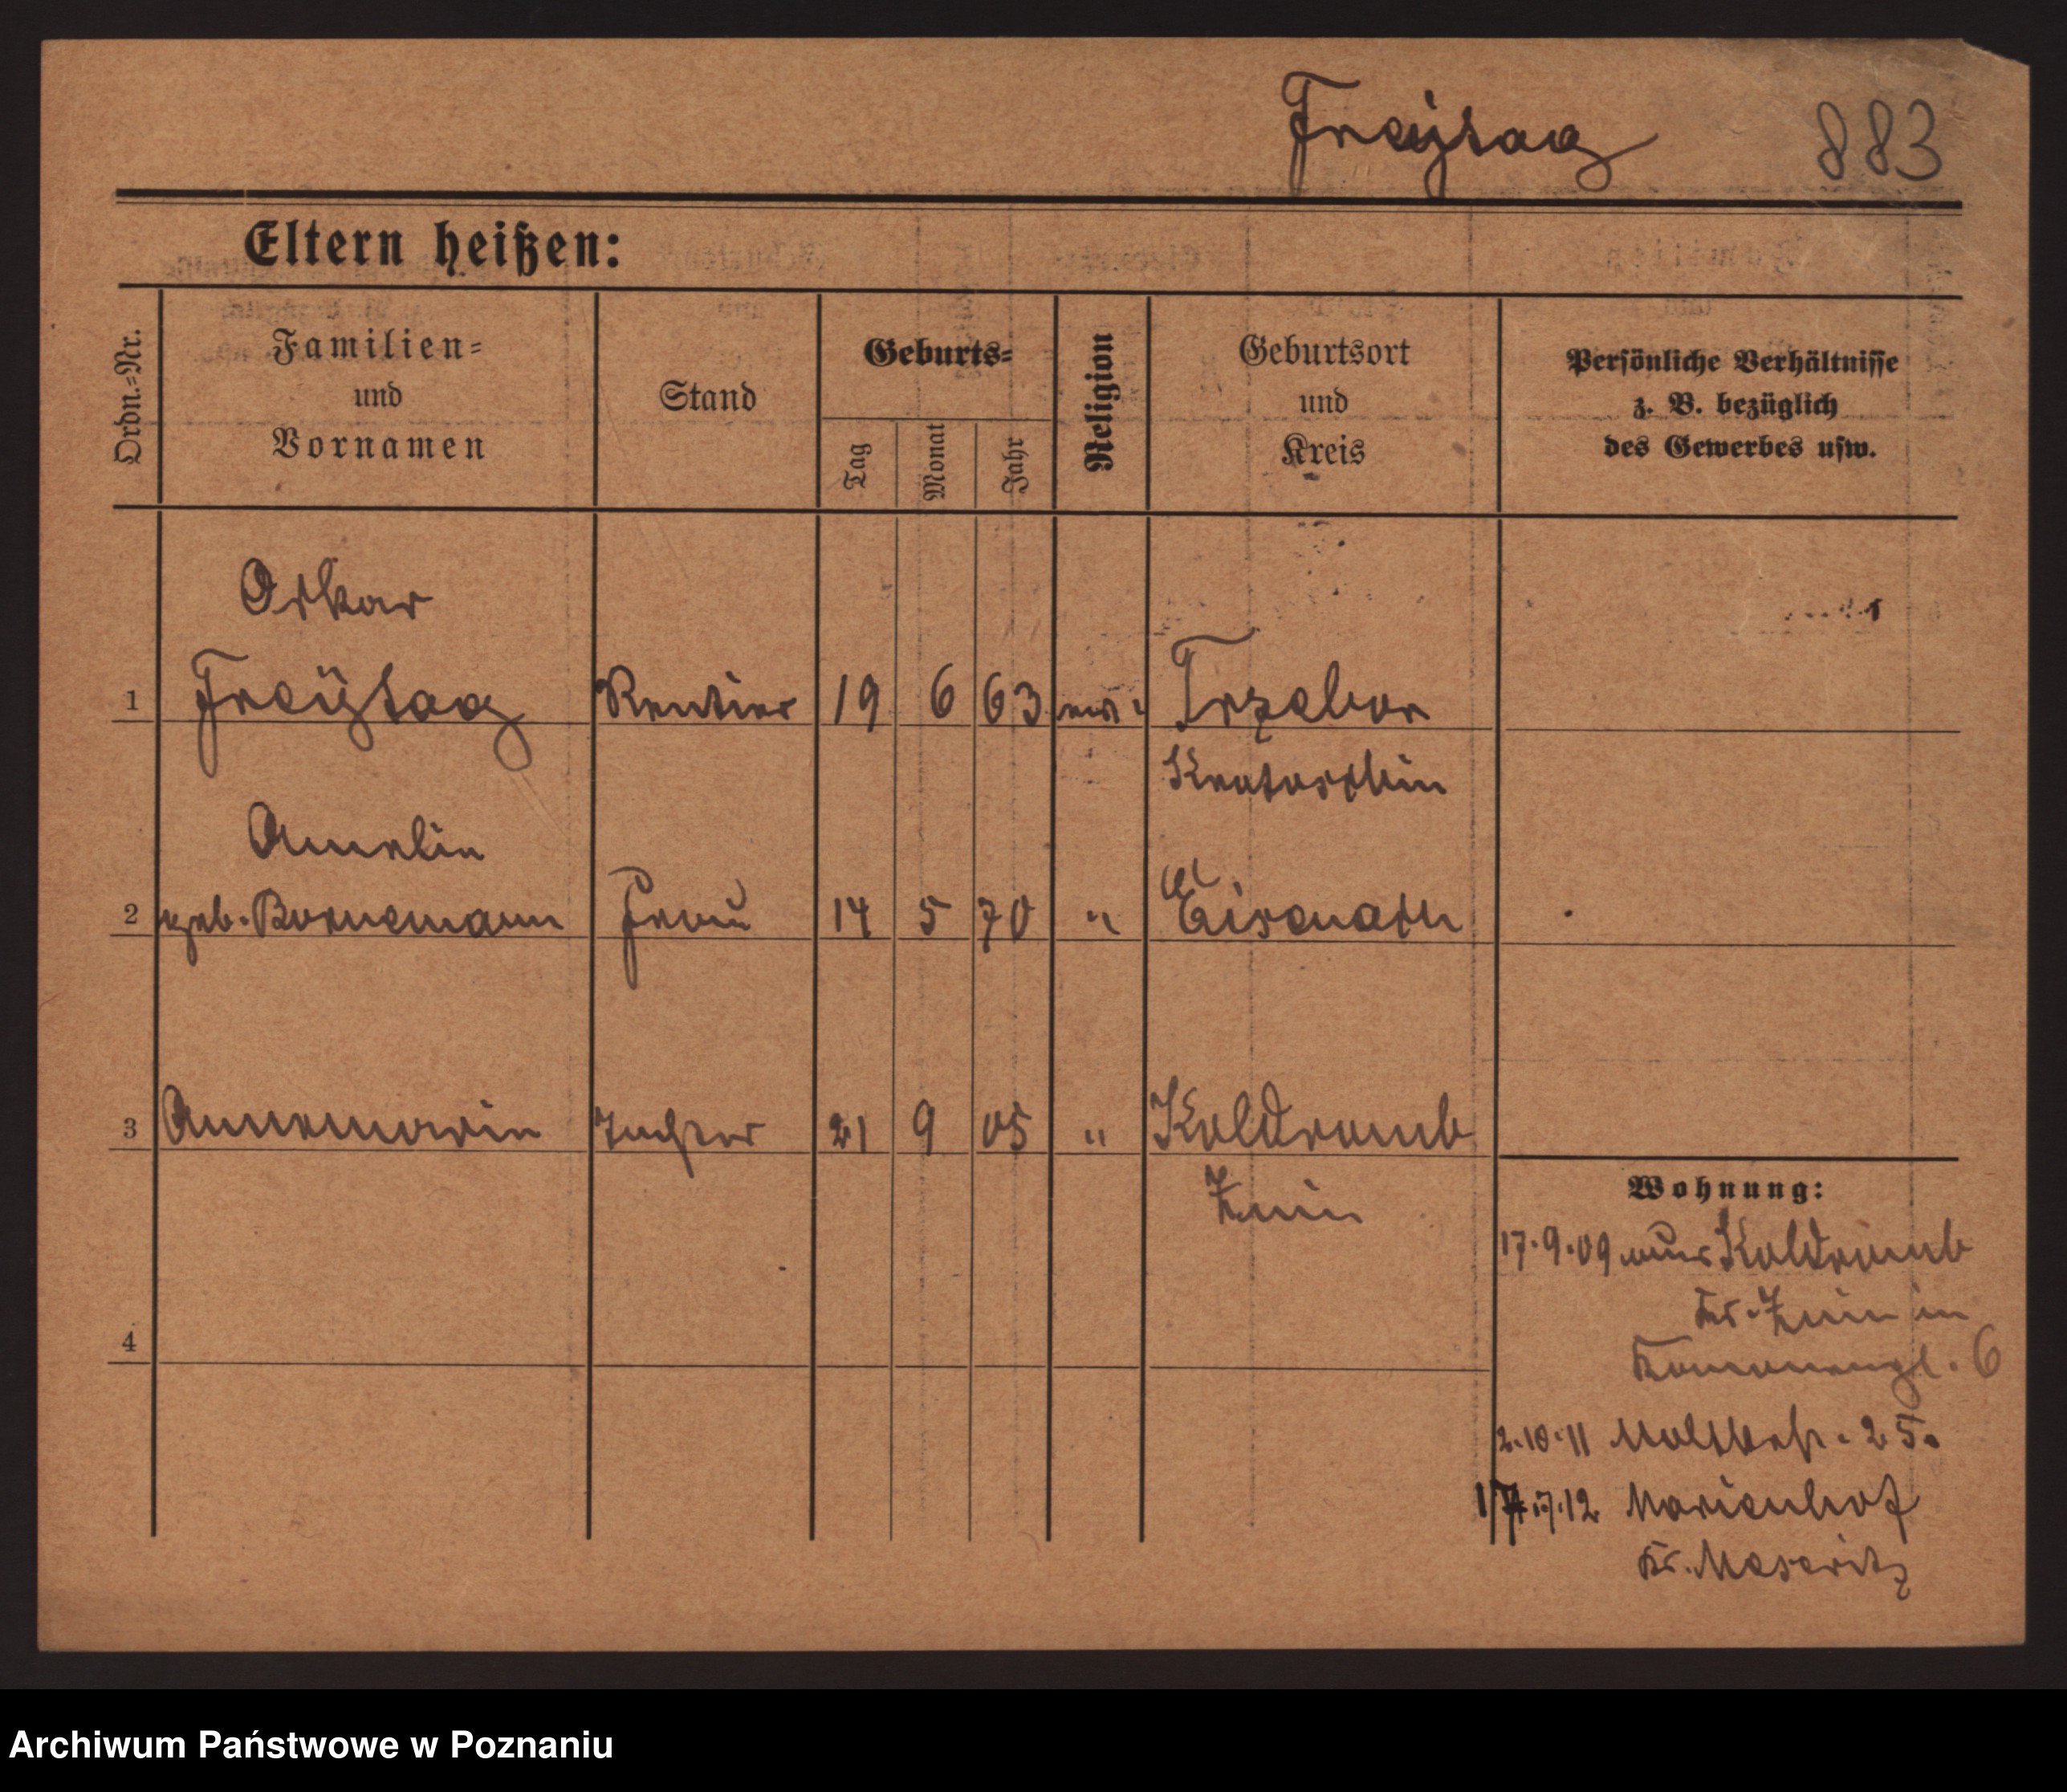 Freÿtag 883
Eltern heißen:
Ordn.-Nr.
Familien-
und
Vornamen
Stand
Geburts-
Tag
Monat
Jahr
Religion
Geburtsort
und
Kreis
Persönliche Verhältnisse
z. B. bezüglich
des Gewerbes usw.
Oskar
1 Freÿtag Rentier 19 6 63 Trzebor
Krotoschin
Amalie
2 geb. Bornemann Frau 14 5 70 "
3 Annemarie Tochter 21 9 05 " Koldromb
Znin
Wohnung:
17.9.09 aus Koldromb
Kr. Znin in
4
2.10.11 Moltkestr. 25.
12 Marienhof
Kr. Meseritz
Archiwum Państwowe w Poznaniu